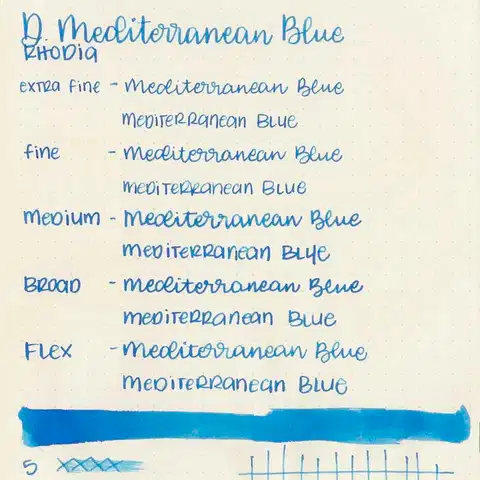 D. Mediterranean Blue
RHODIA
extra fine - Mediterranean Blue
MEDITERRANEAN BLUE
fine - Mediterranean Blue
MEDITERRANEAN BLUE
MEDIUM - Mediterranean Blue
MEDITERRANEAN BLUE
BROAD - Mediterranean Blue
MEDITERRANEAN BLUE
FLEX - Mediterranean Blue
MEDITERRANEAN BLUE
5